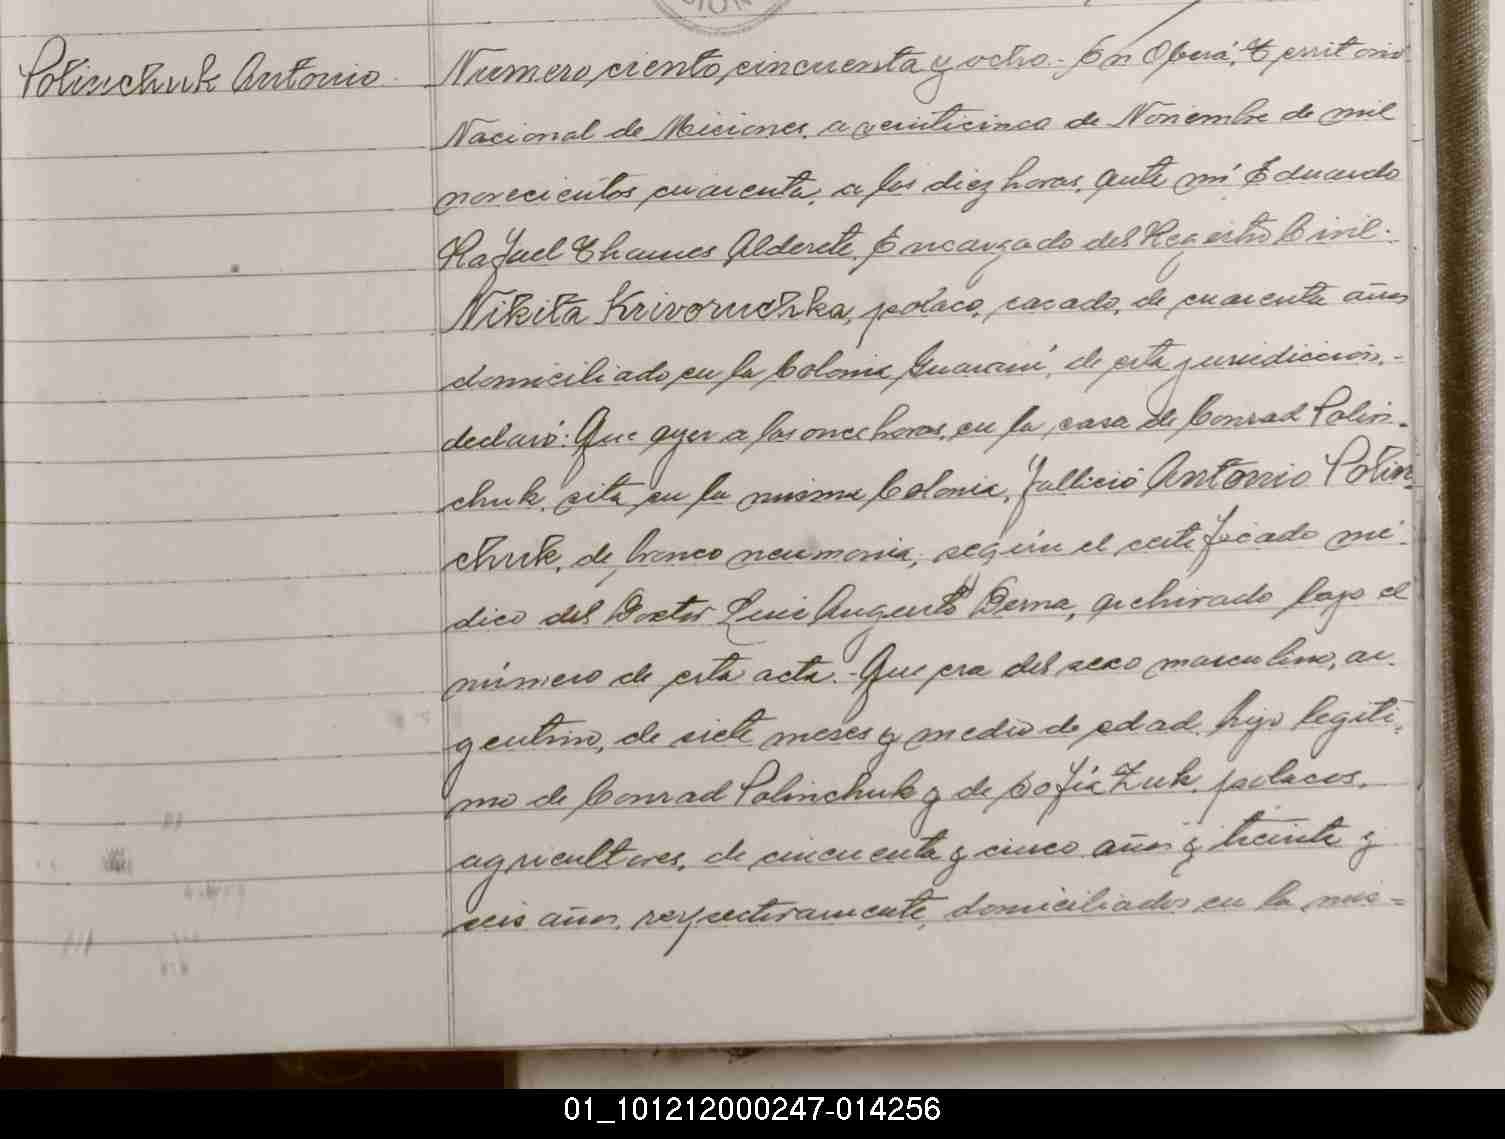 CION
Polinchuk Antonio.
Numero ciento cincuenta y ocho.- En Oberá, Territorio
Nacional de Misiones, a veinticinco de Noviembre de mil
novecientos cuarenta, a las diez horas, ante mí Eduardo
Rafael Thames Alderete, Encargado del Registro Civil.-
Nikita Krivoruchka, polaco, casado, de cuarenta años
domiciliado en la Colonia Guaraní, de esta jurisdicción,-
declaró: Que ayer a las once horas, en la casa de Conrad Polin-
chuk, sita en la misma Colonia, falleció Antonio Polin-
chuk, de bronco neumonia, según el certificado mé-
dico del Doctor Luis Augusto Derna, archivado bajo el
número de esta acta.- Que era del sexo masculino, ar-
gentino, de siete meses y medio de edad, hijo legiti-
mo de Conrad Polinchuk y de Sofía Zuk, polacos,
agricultores, de cincuenta y cinco años y treinta y
seis años, respectivamente, domiciliados en la mis=
01_101212000247-014256